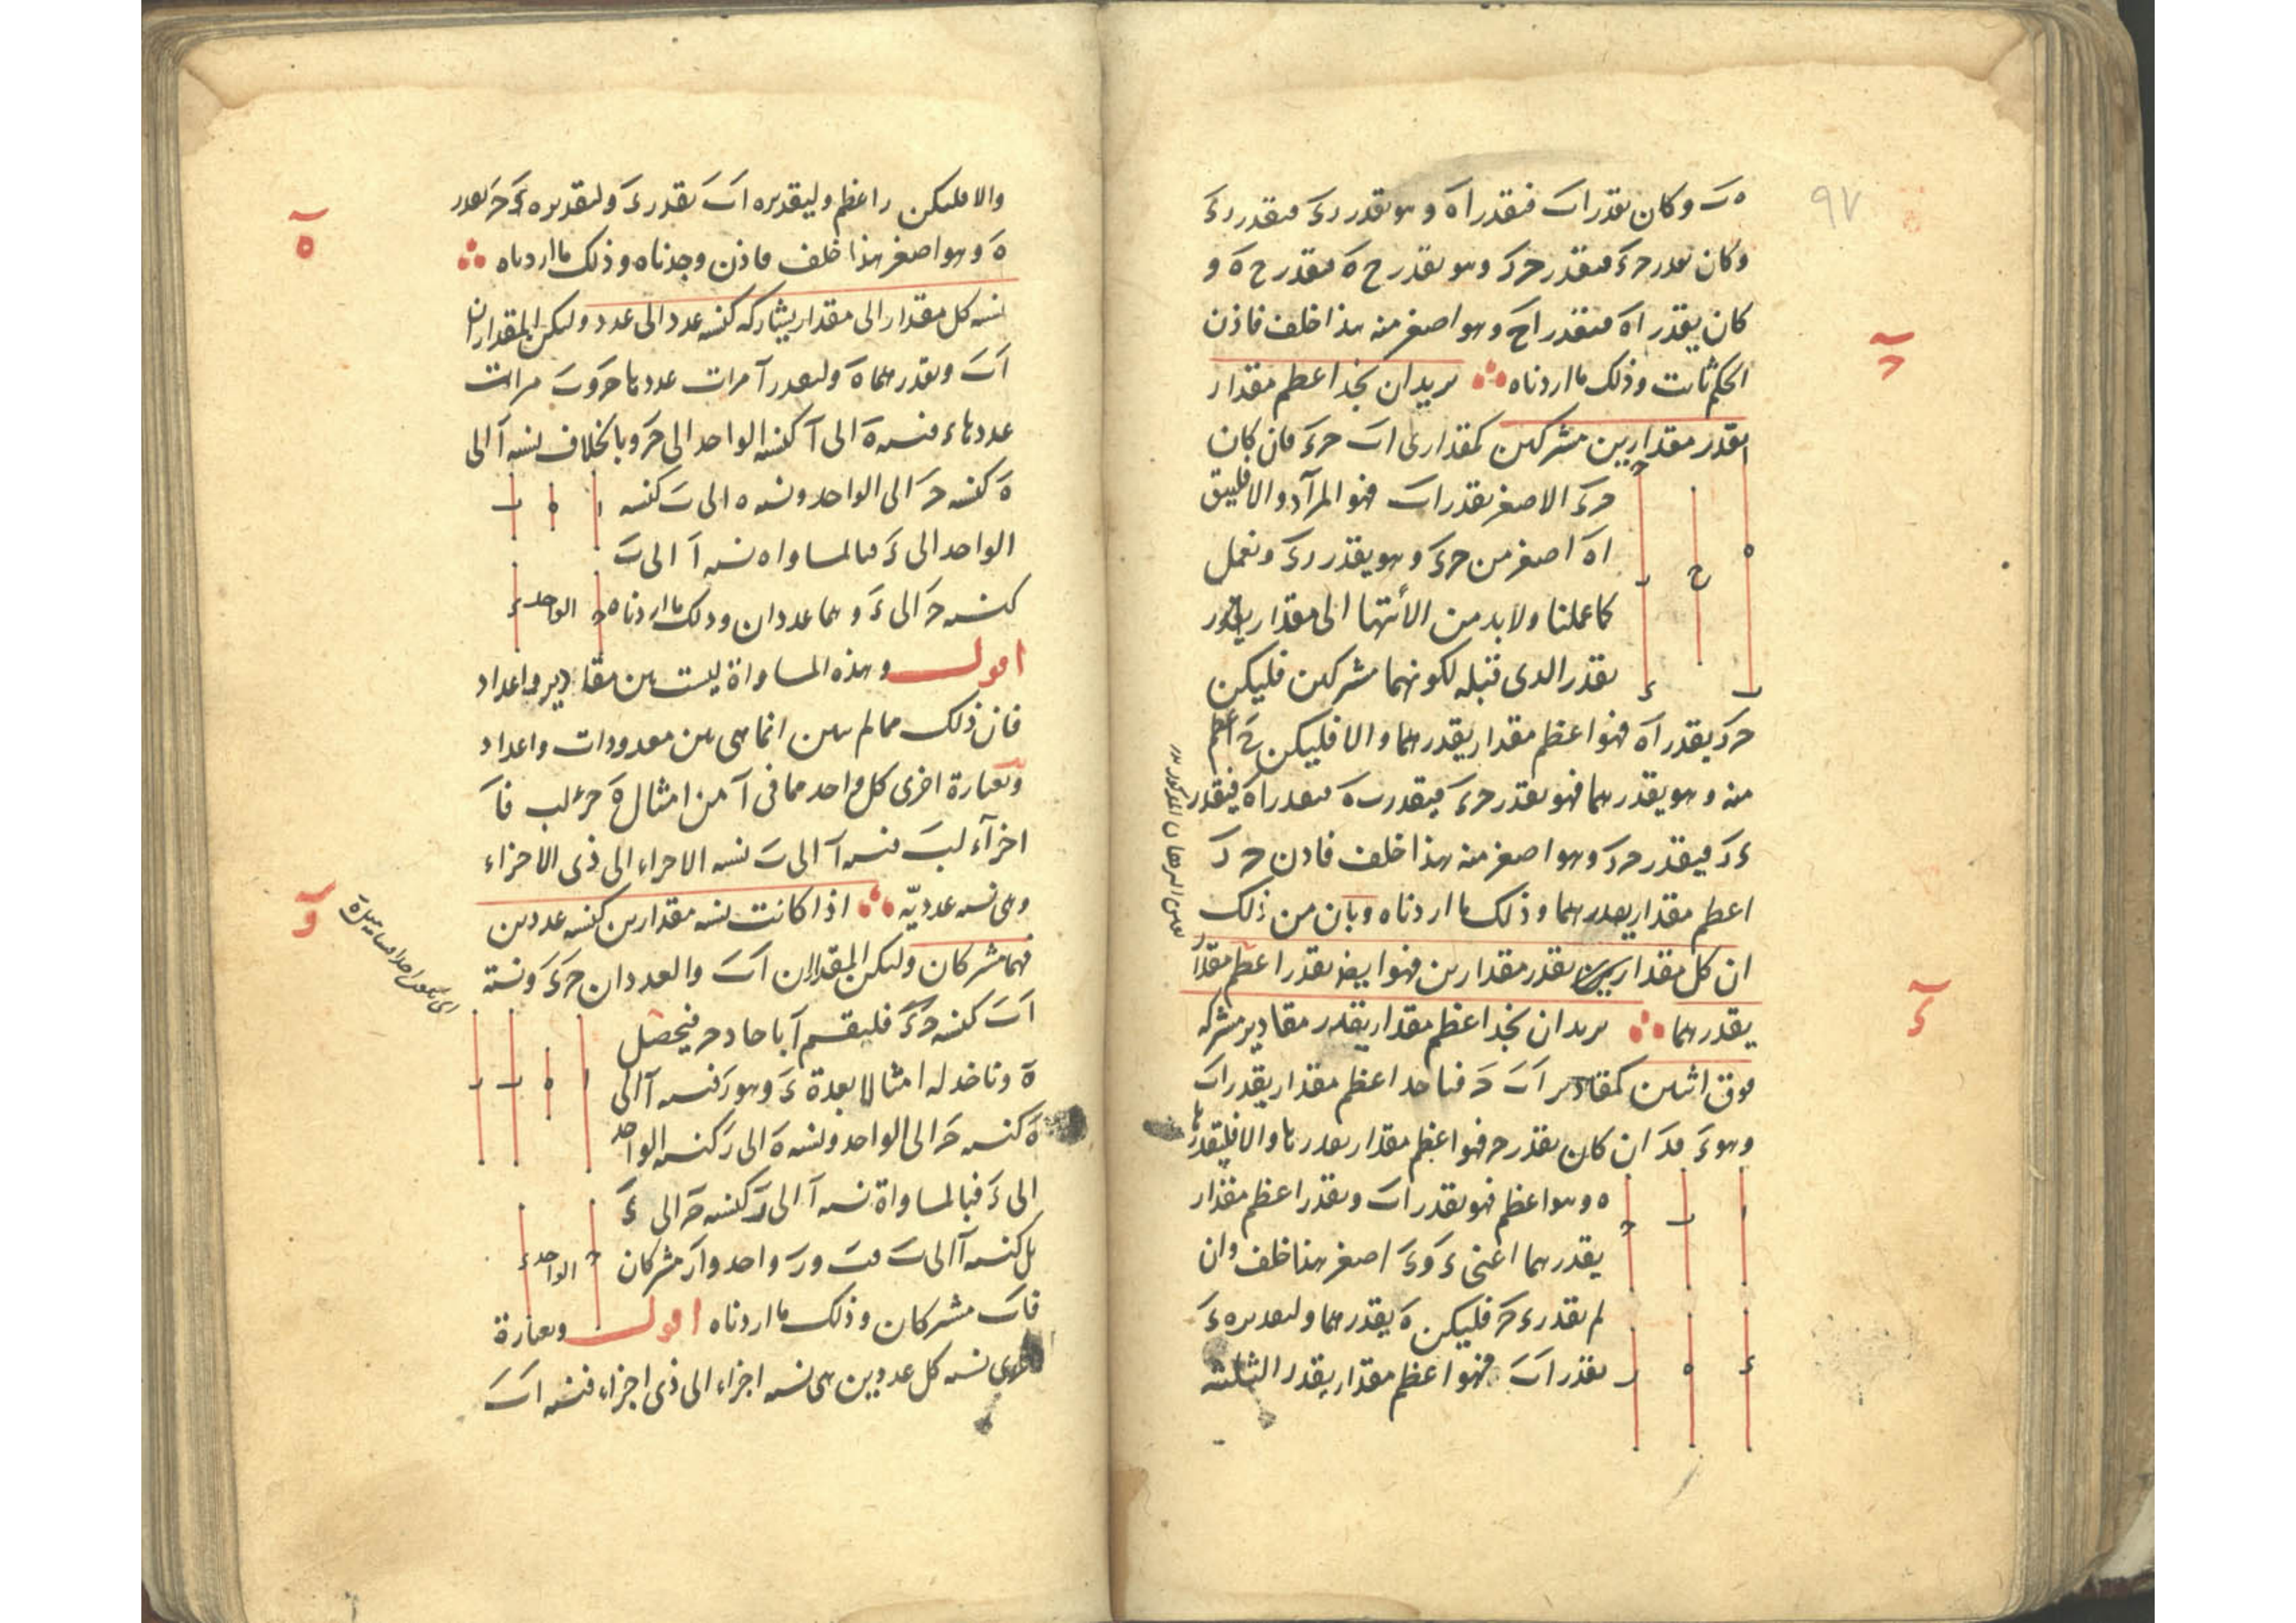 ٩٧
ه ب وكان يقدر اب فيقدر اه وهو يقدر رء فيقدر رء
وكان يقدر حء فيقدر حر وهو يقدر ح ه فيقدر ح ه و
كان يقدر اه فيقدر اح وهو اصغر منه هذا خلف فاذن
الحكم ثابت وذلك ما اردناه نريد ان نجد اعظم مقدار
ج
يقدر مقدارين مشتركين كمقدارى اب حء فان كان
حء الاصغر يقدر اب فهو المراد والا فليبق
اه اصغر من حء وهو يقدر رء ونعمل
كما عملنا ولا بد من الانتها الى مقدار يقدر
يقدر الذى قبله لكونهما مشتركين فليكن
حر يقدر اه فهو اعظم مقدار يقدرهما والا فليكن ح اعظم
منه وهو يقدرهما فهو يقدر حء فيقدر ب ه فيقدر اه فيقدر
ء ر فيقدر حر وهو اصغر منه هذا خلف فاذن حر
اعظم مقدار يقدرهما وذلك ما اردناه وبان من ذلك
ان كل مقدار يقدر مقدارين فهو ايضا يقدر اعظم مقدار
يقدرهما نريد ان نجد اعظم مقدار يقدر مقادير مشتركة
ء
فوق اثنين كمقادير اب ح فناخذ اعظم مقدار يقدر اب
وهو ء فء ان كان يقدر ح فهو اعظم مقدار يقدرها والا فليقدرها
ه وهو اعظم فهو يقدر اب ويقدر اعظم مقدار
يقدرهما اعنى ء وء اصغر هذا خلف وان
لم يقدر ء ح فليكن ه يقدرهما ولتقديره ء
يقدر اب فهو اعظم مقدار يقدر الثلثة
والا فليكن ر اعظم وليقديره اب يقدر ء ولتقديره ء ح يقدر
ه وهو اصغر هذا خلف فاذن وجدناه وذلك ما اردناه
ه
نسبة كل مقدار الى مقدار يشاركه كنسبة عدد الى عدد وليكن المقداران
اب ويقدرهما ه وليقدر ا مرات عددها ح وب مرات
عددها ء فنسبة ه الى ا كنسبة الواحد الى ح وبالخلاف نسبة ا الى
ه كنسبة ح الى الواحد ونسبة ه الى ب كنسبة
الواحد الى ء فبالمساواه نسبة ا الى ب
كنسبة ح الى ء وهما عددان وذلك ما اردناه
الواحد
اقول وهذه المساواة ليست بين مقادير واعداد
فان ذلك مما لم يبين انما هى بين معدودات واعداد
وبعبارة اخرى كل واحد مما فى ا من امثال ه جزء لب فا
اجزاء لب فنسبة ا الى ب نسبة الاجزاء الى ذى الاجزاء
وهى نسبة عددية اذا كانت نسبة مقدارين كنسبة عددين
و
فهما مشتركان وليكن المقداران اب والعددان حء ونسبة
اب كنسبة حء فليقسم ا باحاد ح فيحصل
ه وناخذ له امثالا بعدة ء وهو ر فنسبة ا الى
ه كنسبة ح الى الواحد ونسبة ه الى ر كنسبة الواحد
الى ء فبالمساواة نسبة ا الى ر كنسبة ح الى ء
بل كنسبة ا الى ب فب ور واحد وا ر مشتركان
الواحد
فاب مشتركان وذلك ما اردناه اقول وبعبارة
اخرى نسبة كل عددين هى نسبة اجزاء الى ذى اجزاء فنسبة اب